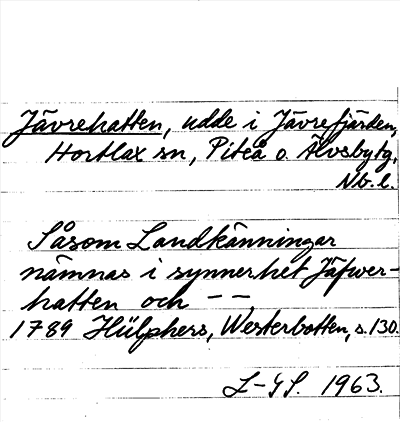 Jävrehatten, udde i Jävrefjärden,
Hortlax sn, Piteå o. Älvsbytg,
Nb. l.
Såsom Landkänningar
nämnas i synnerhet Jäfwer-
hatten och – –
1789 Hülphers, Westerbotten, s. 130.
L-GS. 1963.